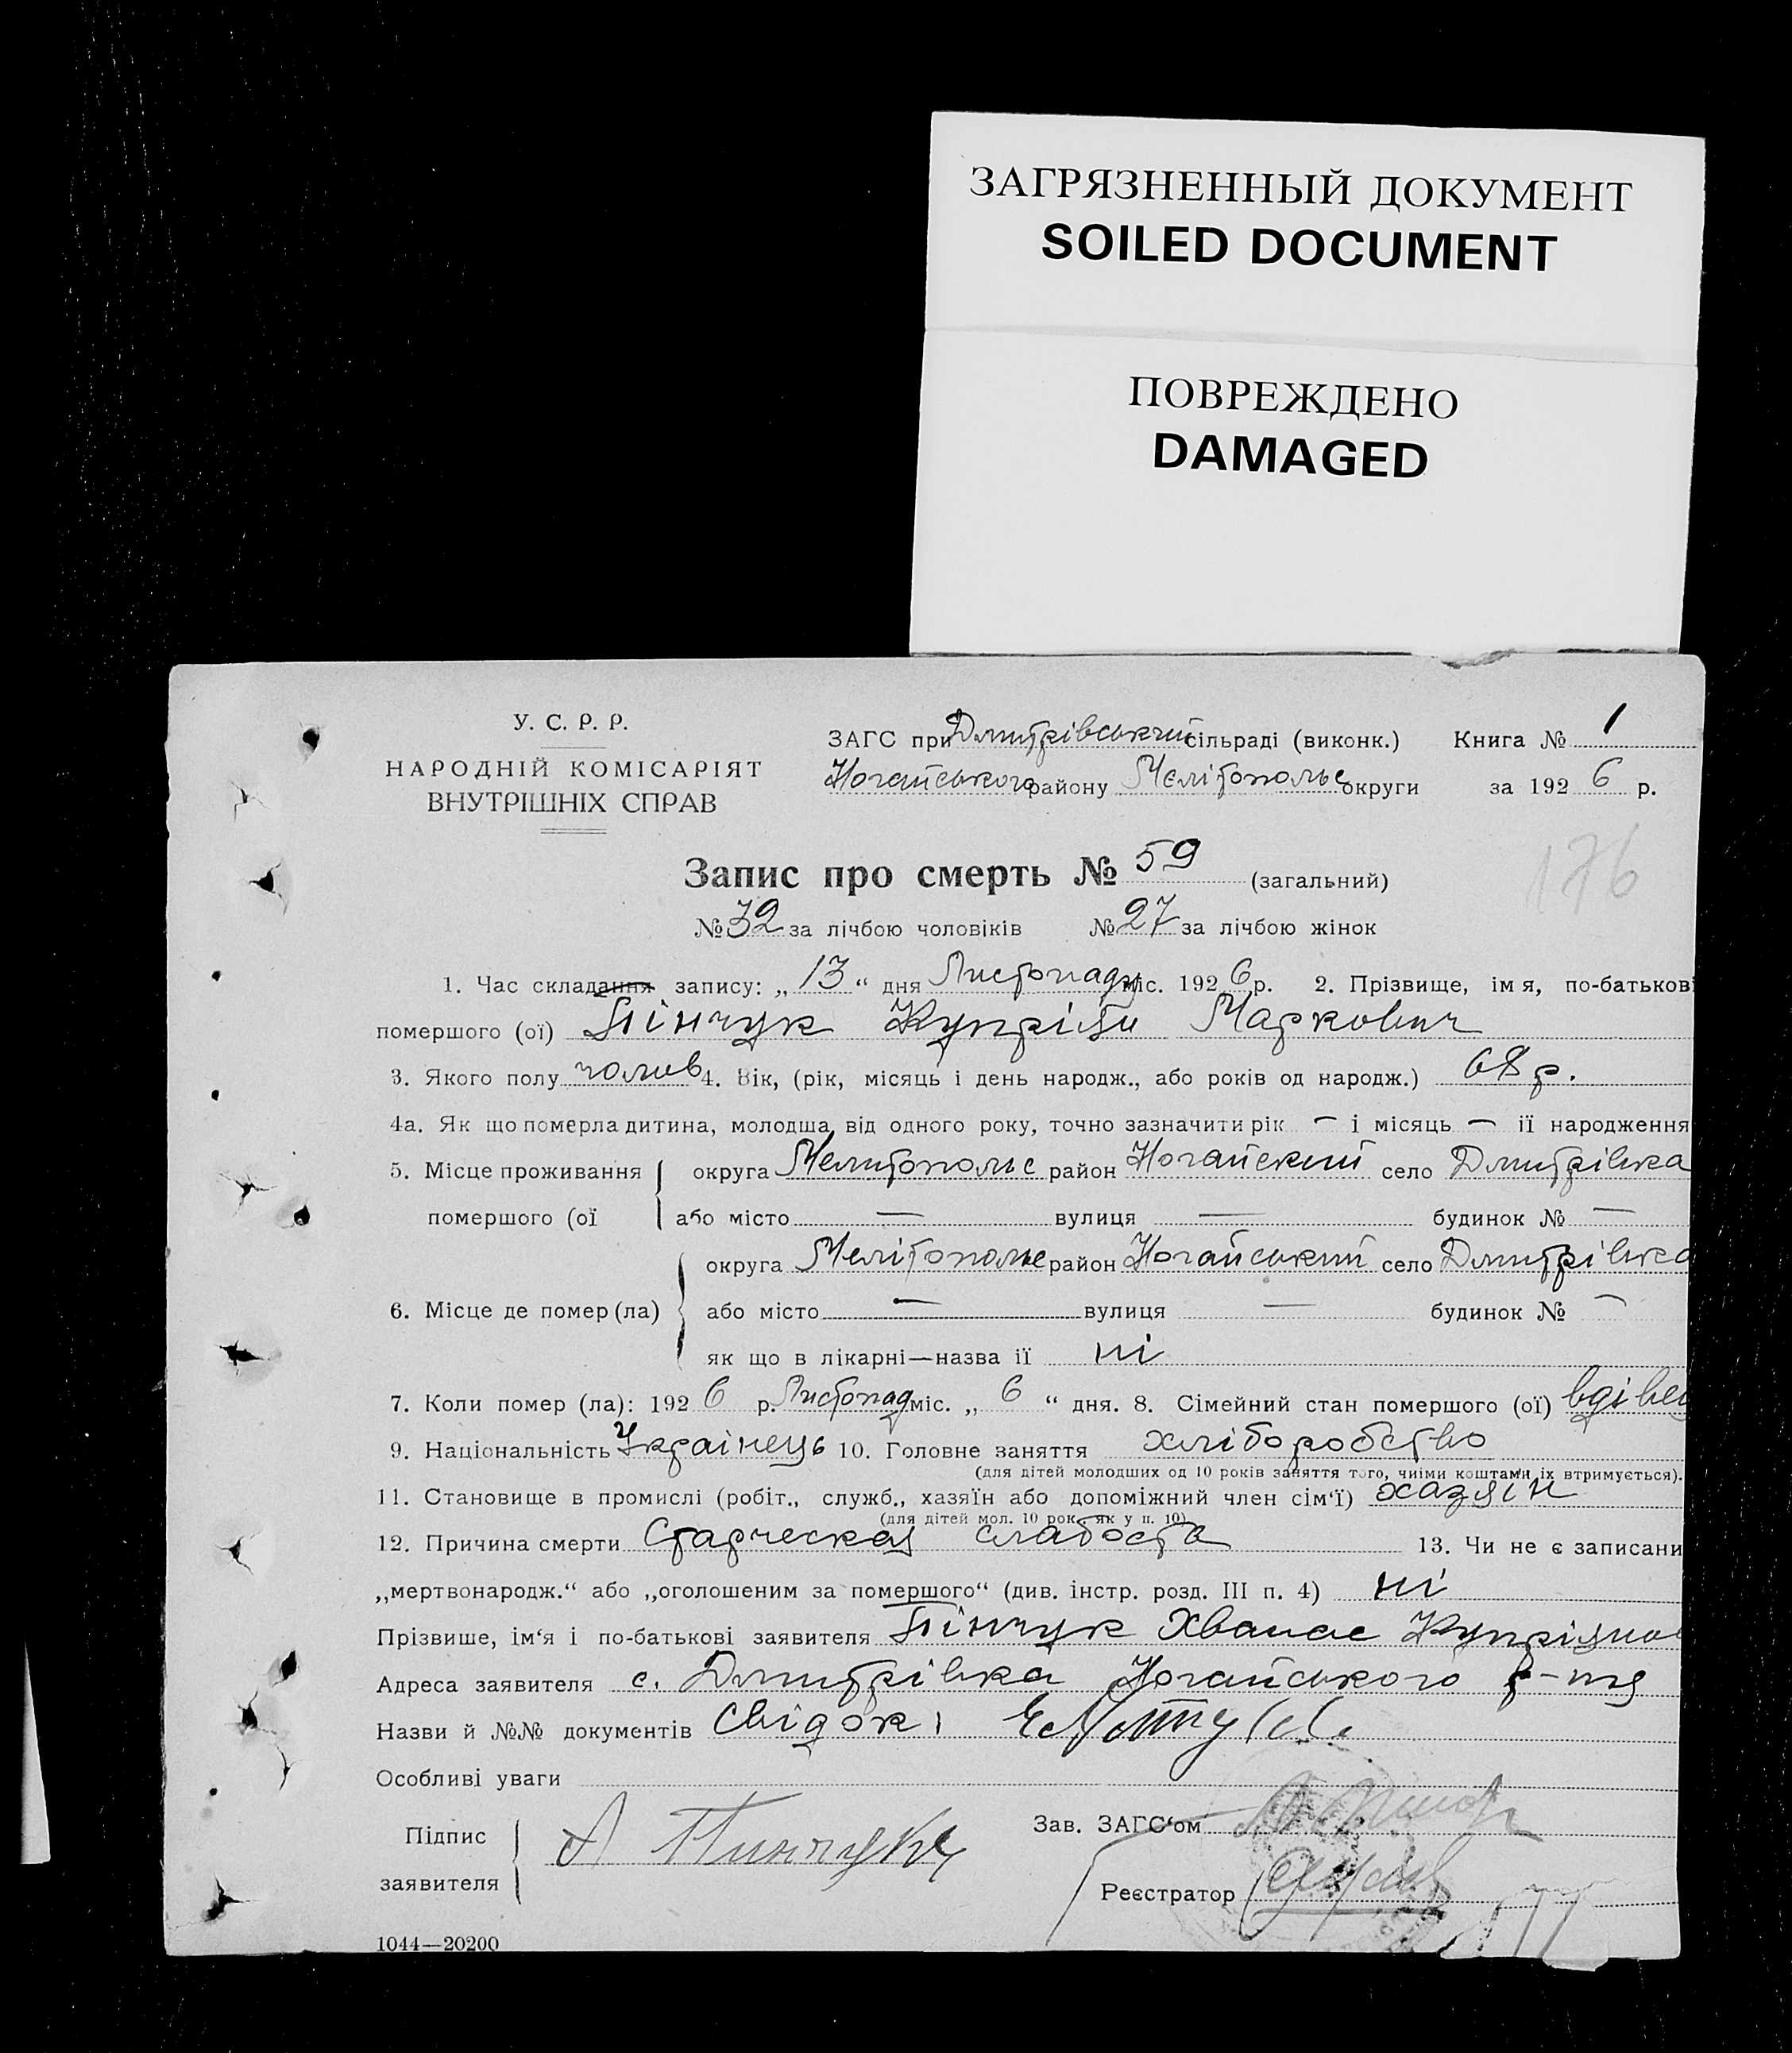 ЗАГРЯЗНЕННЫЙ ДОКУМЕНТ
SOILED DOCUMENT
ПОВРЕЖДЕНО
DAMAGED
У. С. Р. Р.
НАРОДНІЙ КОМІСАРІЯТ
ВНУТРІШНІХ СПРАВ
ЗАГС при Дмитрівський сільраді (виконк.) Книга № 1
Ногайського району Мелітопольс округи за 1926 р.
Запис про смерть № 59 (загальний)
176
№ 32 за лічбою чоловіків № 27 за лічбою жінок
1. Час складання запису: „ 13 “ дня Листопаду міс. 1926 р. 2. Прізвище, імя, по-батькові
помершого (ої) Пінчук Купріян Маркович
3. Якого полу чолов 4. Вік, (рік, місяць і день народж., або років од народж.) 68 р.
4а. Як що померла дитина, молодша від одного року, точно зазначити рік — і місяць — її народження
5. Місце проживання округа Мелитопольс район Ногайский село Дмитрівка
помершого (ої або місто — вулиця — будинок № —
округа Мелітопольс район Ногайський село Дмитрівка
6. Місце де помер (ла) або місто — вулиця — будинок № —
як що в лікарні—назва її ні
7. Коли помер (ла): 1926 р. Листопад міс. „ 6 “ дня. 8. Сімейний стан помершого (ої) вдівец
9. Національність Українець 10. Головне заняття хліборобство
(для дітей молодших од 10 років заняття того, чиїми коштами їх втримується).
11. Становище в промислі (робіт., служб., хазяїн або допоміжний член сім'ї) хазяїн
(для дітей мол. 10 рок. як у п. 10)
12. Причина смерти Старческая слабость 13. Чи не є записани
„мертвонародж.“ або „оголошеним за помершого“ (див. інстр. розд. III п. 4) ні
Прізвише, ім'я і по-батькові заявителя Пінчук Хванас Купріянов
Адреса заявителя с. Дмитрівка Ногайського р-ну
Назви й №№ документів Свідок:
Особливі уваги
Підпис
заявителя А Пинчукъ
Зав. ЗАГС'ом
Реєстратор
1044—20200